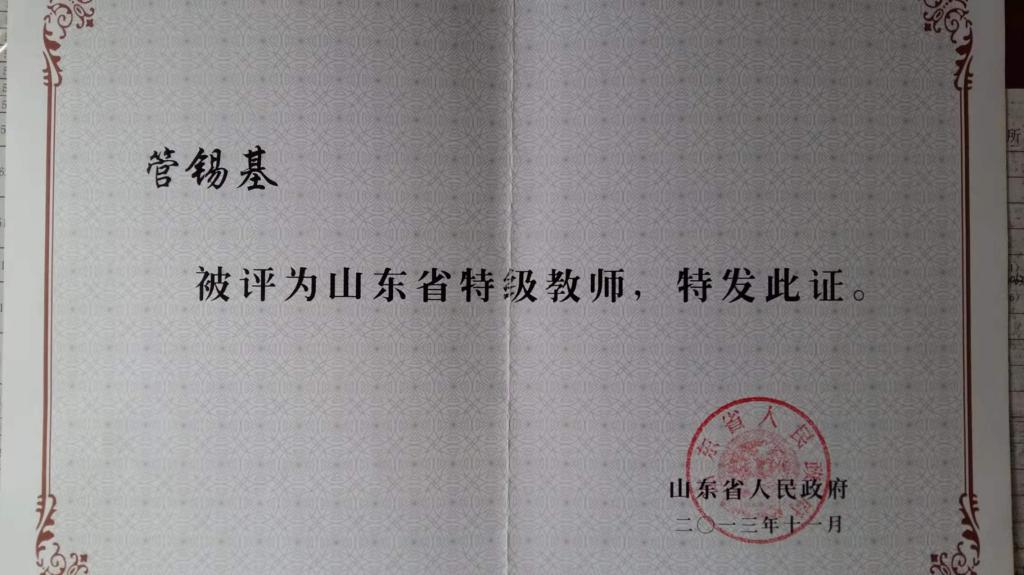 管锡基
被评为山东省特级教师，特发此证。
山东省人民政府
山东省人民政府
二〇一三年十一月
所